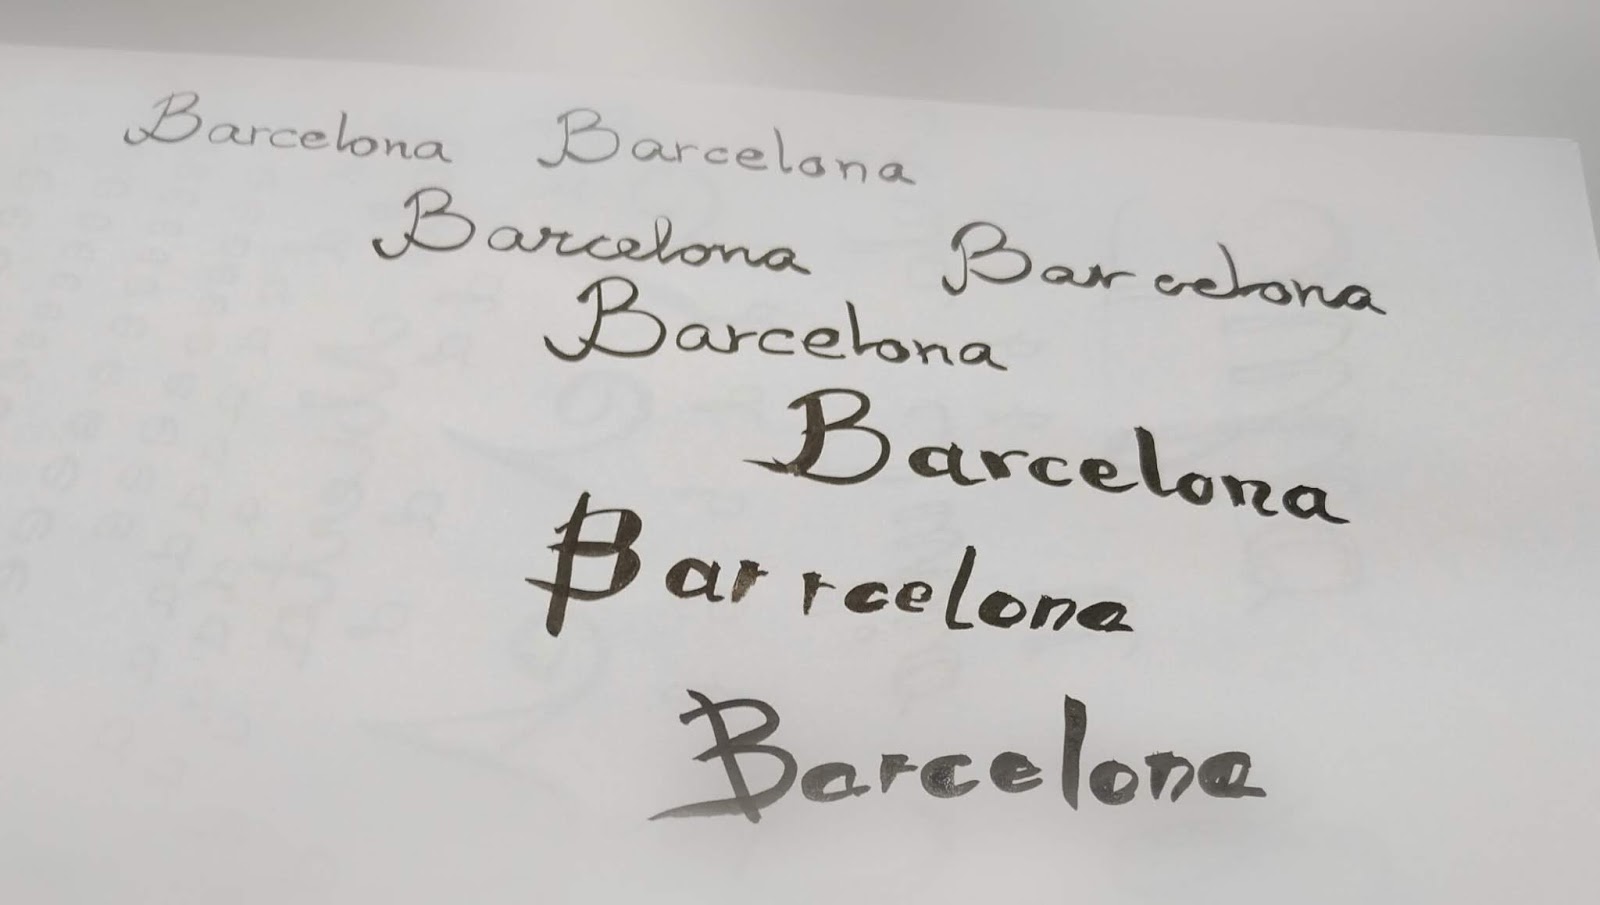 Barcelona Barcelona
Barcelona Barcelona
Barcelona
Barcelona
Barrcelona
Barcelona